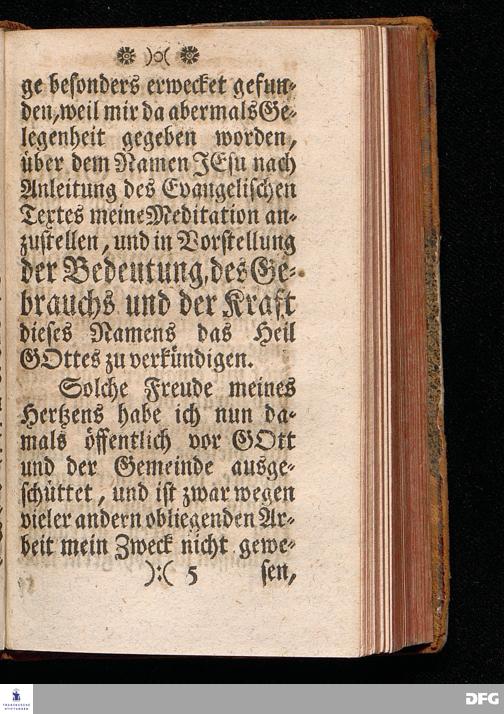 ❋ ):( ❋
ge besonders erwecket gefun-
den, weil mir da abermals Ge-
legenheit gegeben worden,
über dem Namen JEsu nach
Anleitung des Evangelischen
Textes meine Meditation an-
zustellen, und in Vorstellung
der Bedeutung, des Ge-
brauchs und der Kraft
dieses Namens das Heil
GOttes zu verkündigen.
Solche Freude meines
Hertzens habe ich nun da-
mals öffentlich vor GOtt
und der Gemeinde ausge-
schüttet, und ist zwar wegen
vieler andern obliegenden Ar-
beit mein Zweck nicht gewe-
):( 5 sen,
FRANCKESCHE
STIFTUNGEN
DFG